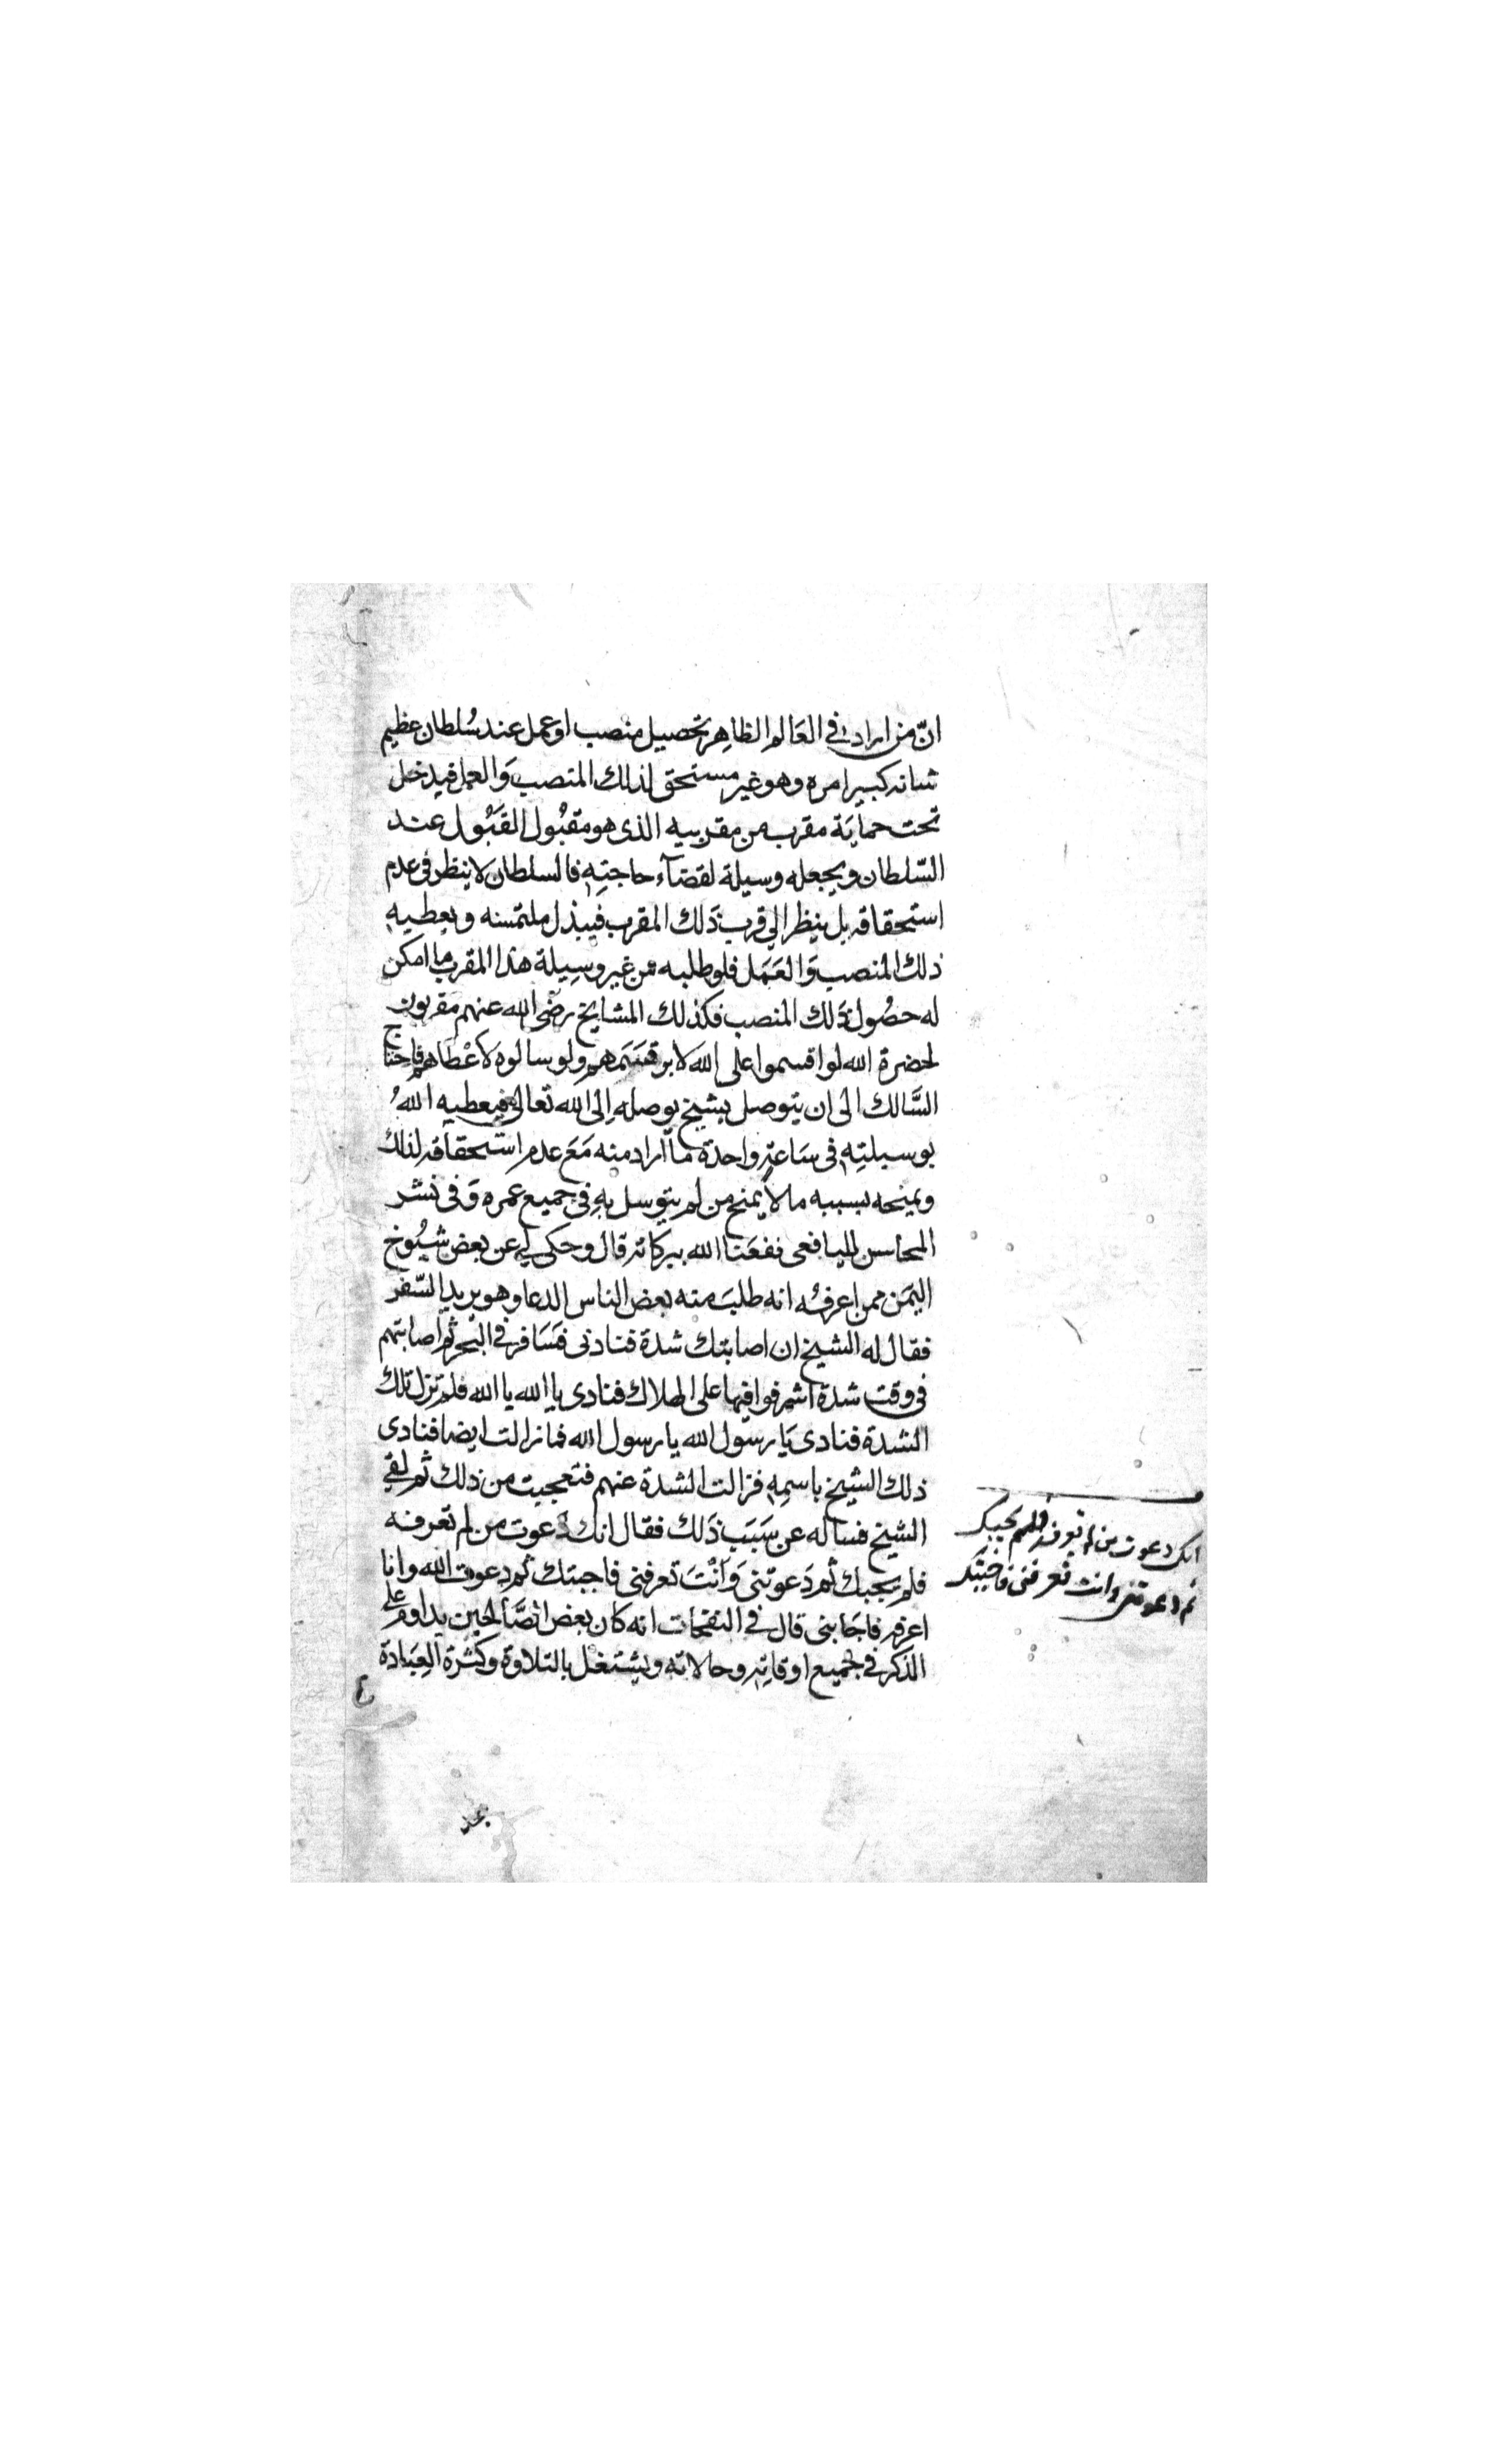 انّ من اراد في العَالم الظاهِر تحصيل منصب او عمل عند سُلطان عظيم
شانه كبير امره وهو غير مستحق لذلك المنصب وَالعمل فيدخل
تحت حمايَة مقرب من مقربيه الذى هو مقبُول القَبُول عند
السّلطان ويجعله وسيلة لقضآء حاجتِهِ فالسلطان لا ينظر فى عدم
استحقاقه بل ينظر الي قرب ذَلك المقرب فيبذل ملتمسه ويعطيهِ
ذلك المنصب وَالعَمَل فلو طلبه من غير وسِيلة هذا المقرب ما امكن
له حصُول ذَلك المنصب فكذلك المشايخ رضى الله عنهم مقربون
لحضرة الله لو اقسموا على اللهَ لابر قسَمَهم ولو سالوه لَاعْطاهم فاحتاج
السَّالك الى ان يتوصل بشيخ يوصله اِلى الله تعالى فيعطيه اللهُ
بوسيلتِهِ فى سَاعةٍ واحدة مآ اراد منه مَعَ عدم استحقاقه لذلك
ويمنحه بسببه ما لا يمنح من لم يتوسل بهِ فى جميع عمره وَفى نشر
المحاسن لليافعى نفعَنا الله ببركاته قال وحكى لي عن بعض شيُوخ
اليمَن ممن اعرفُه انه طلبَ منه بعض الناس الدعا وهو يريد السّفر
فقال له الشيخ ان اصابتك شدة فنادنى فسَافر في البَحر ثم اصابتهم
فى وقت شدة اشرفوا فيها على الهلاك فنادى يا الله يا الله فلم تزل تلك
الشدة فنادى يَا رسول الله يا رسول الله فما زالت ايضا فنادى
ذلك الشيخ باسمِهِ فزالت الشدة عنهم فتعجبت من ذلك ثم لقي
الشيخ فساله عن سَبَب ذَلك فقال انك دعوت من لم تعرفه
فلم يجبك ثم دَعوتنى وَانْتَ تعرفنى فاجبتك ثم دعوت الله وانا
اعرفه فاجَابنى قال في النفحات انه كان بعض الصَّالحين يداوم على
الذكر في جميع اوقاتِهِ وحالاته ويشتغل بالتلاوة وكثرة العِبَادة
انك دعوت من لم تعرفه فلم يجبك
ثم دعوتنى وانت تعرفنى فاجبتك